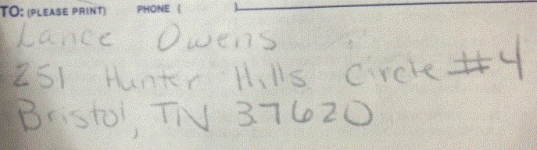 TO: (PLEASE PRINT) PHONE ( )
Lance Owens
251 Hunter Hills Circle #4
Bristol, TN 37620